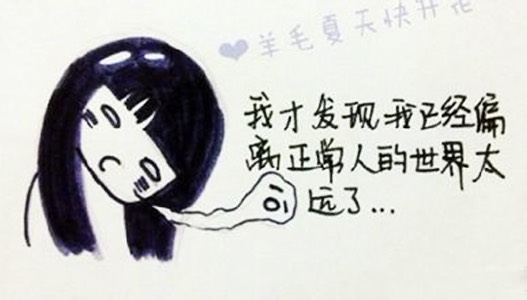 ❤羊毛夏天快开花
我才发现我已经偏
离正常人的世界太
远了...